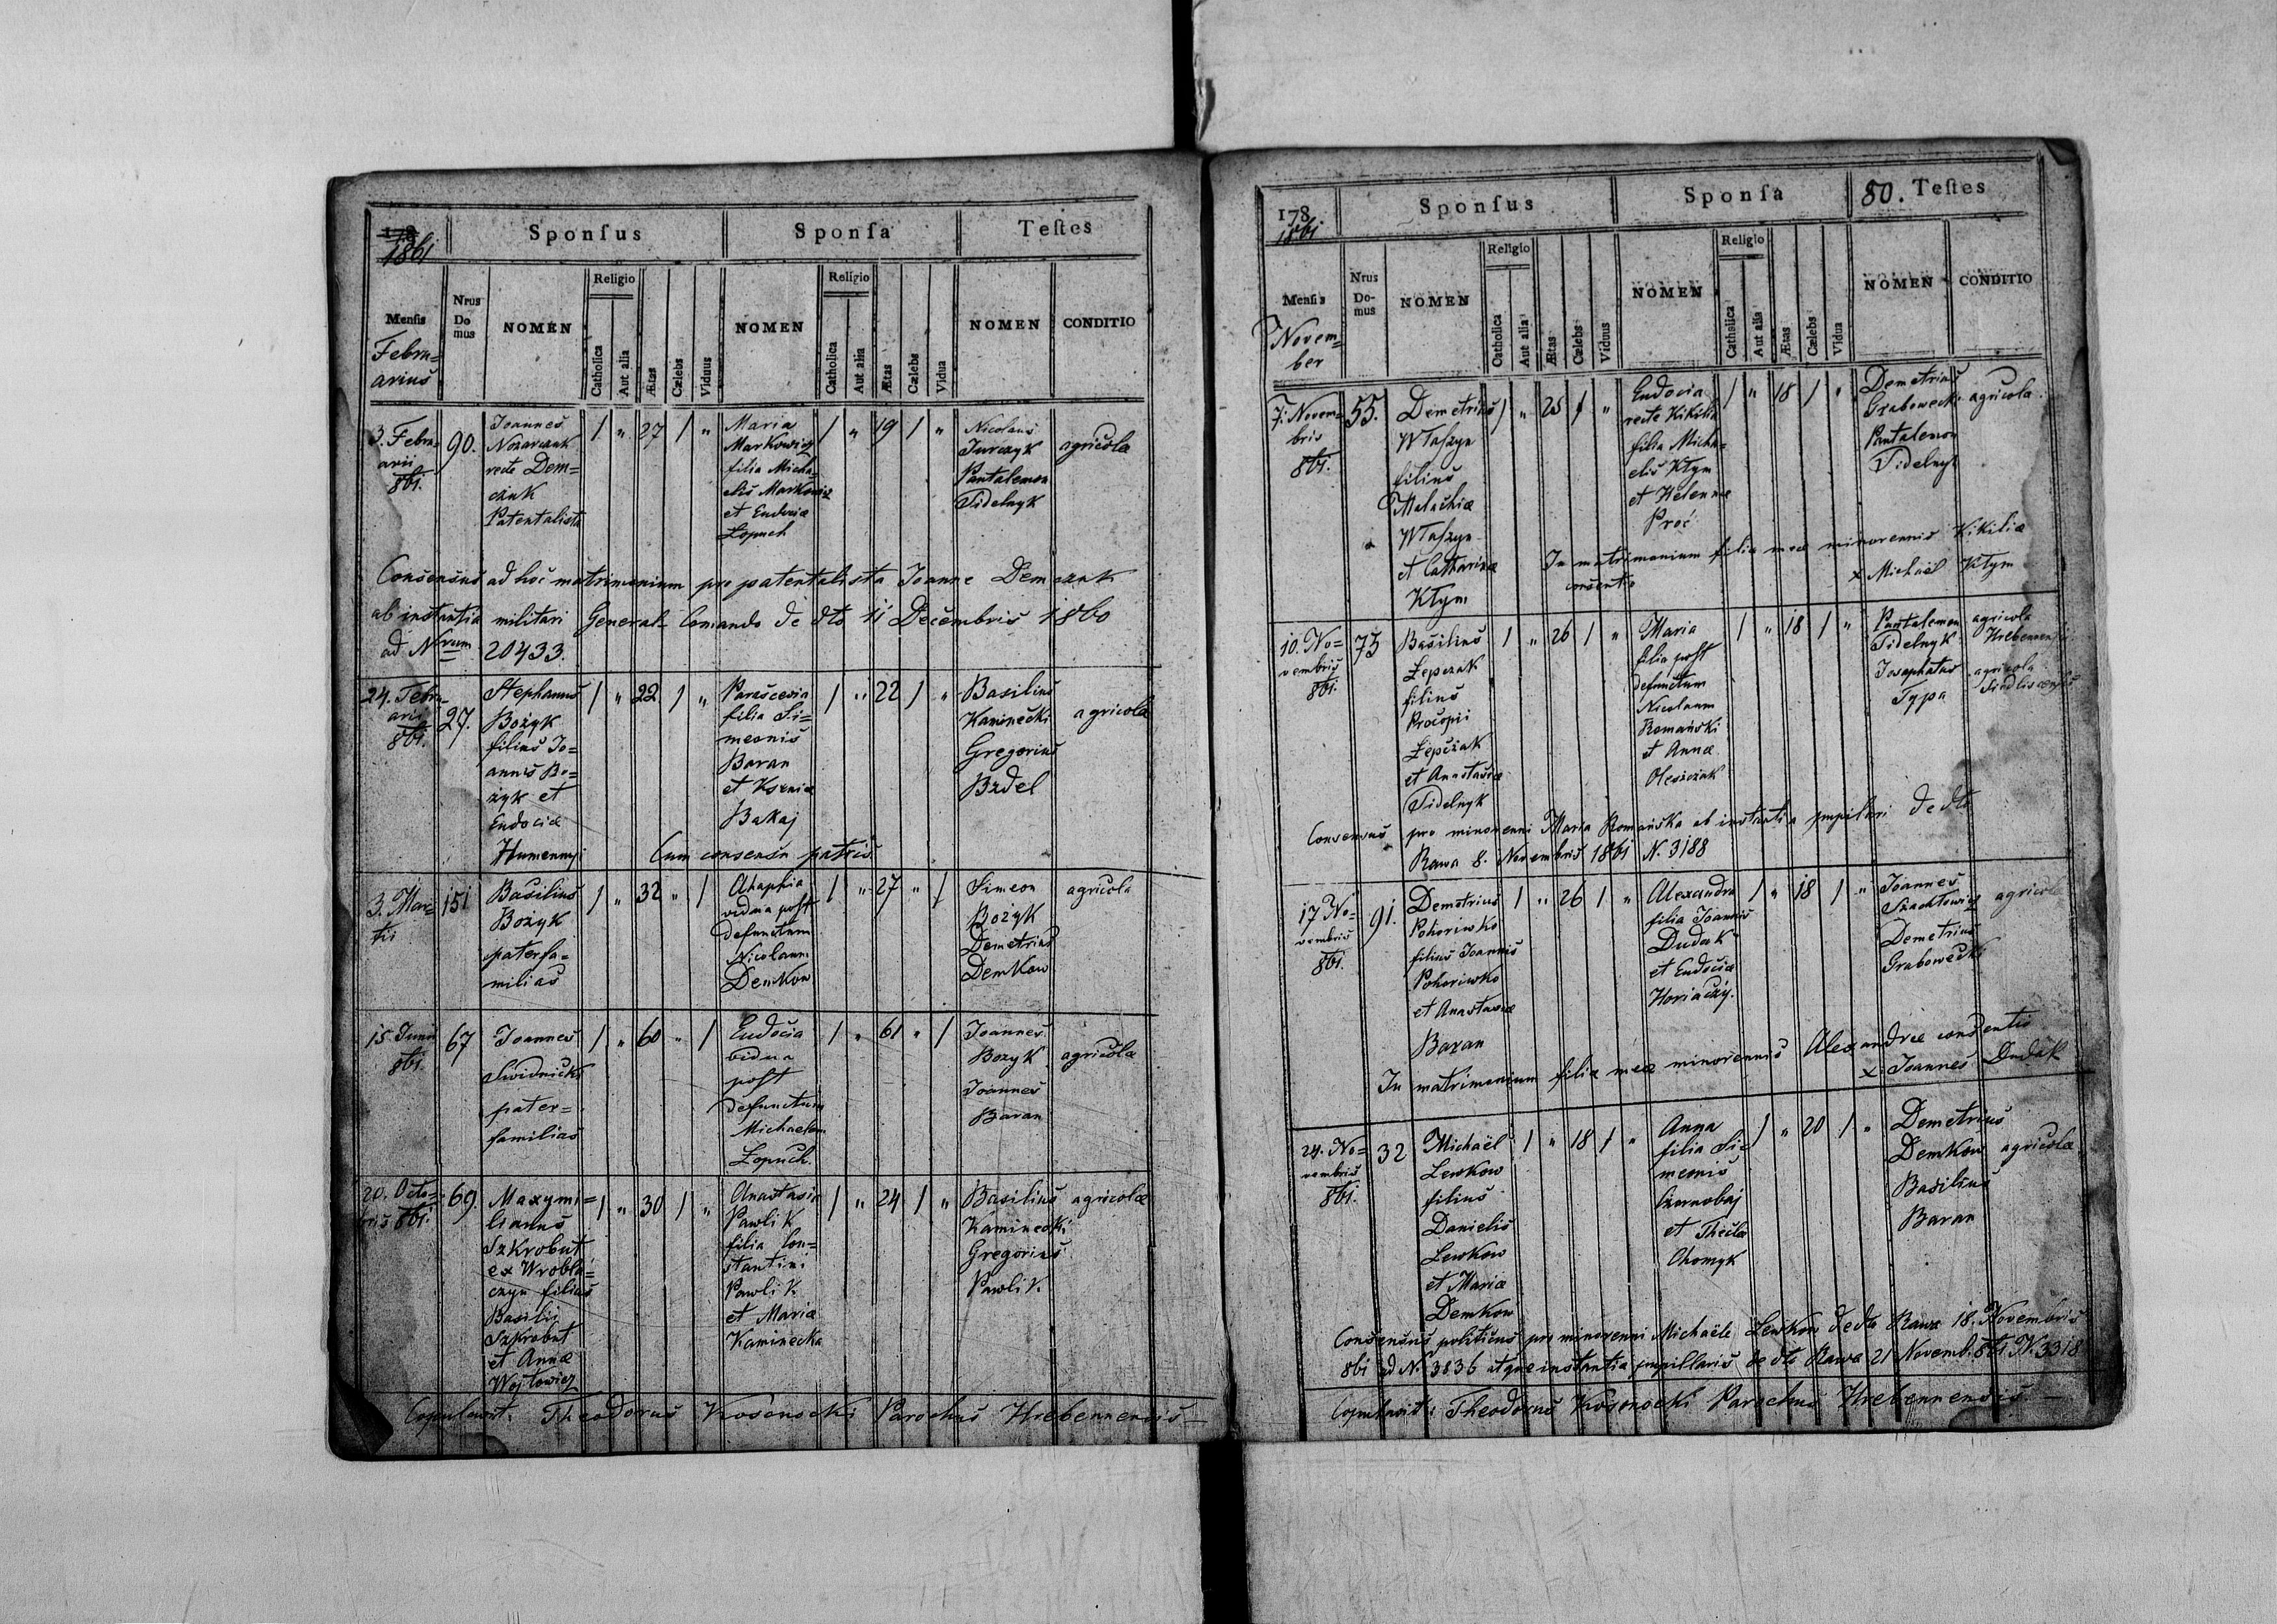 178
1861
Sponſus
Sponſa
Teſtes
Menſis
Febru=
arius
Nrus
Do
mus
NOMEN
Religio
Catholica
Aut alia
Ætas
Cælebs
Viduus
NOMEN
Religio
Catholica
Aut alia
Ætas
Cælebs
Vidua
NOMEN
CONDITIO
3. Febru=
arii
861.
90.
Joannes
recte Dem=
czuk
Patentalista
/ " 27 / "
Maria
Markowicz
filia Micha=
elis Markowicz
et Eudociæ
Łopuch
/ " 19 / "
Nicolaus
Jurczyk
Pantalemon
Fidelnyk
agricola
Consensus ad hoc matrimonium pro patentalista Joanne Demczuk
ab instantia militari General-Comando de dto 11 Decembris 1860
ad Nrum 20433.
24. Febru=
arii
861.
27.
Stephanus
Bożyk
filius Jo=
annis Bo=
żyk et
Eudociæ
Humennyj
/ " 22 / "
Parascevia
filia Si=
meonis
Baran
et Kseniæ
Bakaj
/ " 22 / "
Basilius
Kaminecki
Gregorius
Bzdel
agricola
Cum consensu patris
3. Mar=
tii
151
Basilius
Bożyk
paterfa=
milias
/ " 32 " /
Ahaphia
vidua post
defunctum
Nicolaum
Demkow
/ " 27 " /
Simeon
Bożyk
Demetrius
Demkow
agricola
15 Junii
861.
67
Joannes
Swidnicki
pater=
familias
/ " 60 " /
Eudocia
vidua
post
defunctum
Michaelem
Łopuch.
/ " 61 " /
Joannes
Bozyk
Joannes
Baran
agricola
20. Octo=
bris 861.
69.
Maxymi=
lianus
Szkrobut
ex Wrobla=
czyn filius
Basilii
Szkrobut
et Annæ
Wojtowicz
/ " 30 / "
Anastasia
Pawlik
filia Con=
stantini
Pawlik
et Mariæ
Kaminecka
/ " 24 / "
Basilius
Kaminecki
Gregorius
Pawlik.
agricolæ
Copulavit: Theodorus Kosonocki Parochus Hrebennensis
178
1861
Sponſus
Sponſa
80. Teſtes
Menſis
Novem=
ber
Nrus
Do-
mus
NOMEN
Religio
Catholica
Aut alia
Ætas
Cælebs
Viduus
NOMEN
Religio
Catholica
Aut alia
Ætas
Cælebs
Vidua
NOMEN
CONDITIO
7. Novem=
bris
861.
55.
Demetrius
Wlaszyn
filius
Malachiæ
Wlaszyn
et Catharinæ
Kłym
/ " / "
Eudocia
recte Kikilia
filia Micha=
elis Kłym
et Helennæ
Proć
/ " 18 / "
Demetrius
Grabowecki
Pantalemon
Fidelnyk
agricola
In matrimonium filiæ meæ minorennis Kikiliæ
consentio x Michaël Kłym
10. No=
vembris
861.
73
Basilius
Łepczak
filius
Procopii
Łepczak
et Anastasiæ
Fidelnyk
/ " 26 / "
Maria
filia post
defunctum
Nicolaum
Romański
et Annæ
Oleszczak
/ " 18 / "
Pantalemon
Fidelnyk
Josaphatus
Typa
agricola
Hrebennensis
agricola
Consensus pro minorenni Maria Romańska ab instantia pupilari de dto
Rawa 8. Novembris 1861 N. 3188
17 No=
vembris
861.
91.
Demetrius
Pohoriwko
filius Joannis
Pohoriwko
et Anastasiæ
Baran
/ " 26 / "
Alexandra
filia Joannis
Dudak
et Eudociæ
Horiaczy.
/ " 18 / "
Joannes
Szachtowicz
Demetrius
Grabowecki
agricolæ
In matrimonium filiæ meæ minorennis Alexandræ consentio
x Joannes Dudak
24. No=
vembris
861.
32
Michaël
Lewkow
filius
Danielis
Lewkow
et Mariæ
Demkow
/ " 18 / "
Anna
filia Si=
meonis
Czornobaj
et Theclæ
Chomyk
/ " 20 / "
Demetrius
Demkow
Basilius
Baran
agricolæ
Consensus politicus pro minorenni Michaële Lewkow de dto Rawa 18. Novembris
861 ad N. 3836 atque instantia pupillaris de dto Rawa 21 Novemb. 861 N. 3318
Copulavit: Theodorus Kosonocki Parochus Hrebennensis